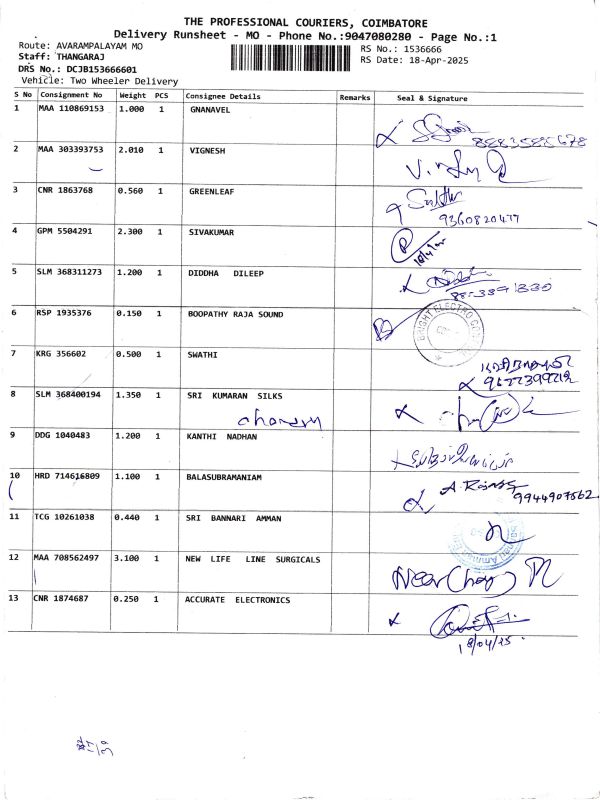 THE PROFESSIONAL COURIERS, COIMBATORE
Delivery Runsheet - MO - Phone No.:9047080280 - Page No.:1
Route: AVARAMPALAYAM MO
RS No.: 1536666
Staff: THANGARAJ
RS Date: 18-Apr-2025
DRS No.: DCJB153666601
Vehicle: Two Wheeler Delivery
S No Consignment No Weight PCS Consignee Details Remarks Seal & Signature
1 MAA 110869153 1.000 1 GNANAVEL
2 MAA 303393753 2.010 1 VIGNESH
3 CNR 1863768 0.560 1 GREENLEAF
9360820477
4 GPM 5504291 2.300 1 SIVAKUMAR
5 SLM 368311273 1.200 1 DIDDHA DILEEP
6 RSP 1935376 0.150 1 BOOPATHY RAJA SOUND
BRIGHT ELECTRO
7 KRG 356602 0.500 1 SWATHI
8 SLM 368400194 1.350 1 SRI KUMARAN SILKS
9 DDG 1040483 1.200 1 KANTHI NADHAN
10 HRD 714616809 1.100 1 BALASUBRAMANIAM
9944907562
11 TCG 10261038 0.440 1 SRI BANNARI AMMAN
12 MAA 708562497 3.100 1 NEW LIFE LINE SURGICALS
13 CNR 1874687 0.250 1 ACCURATE ELECTRONICS
18/04/25